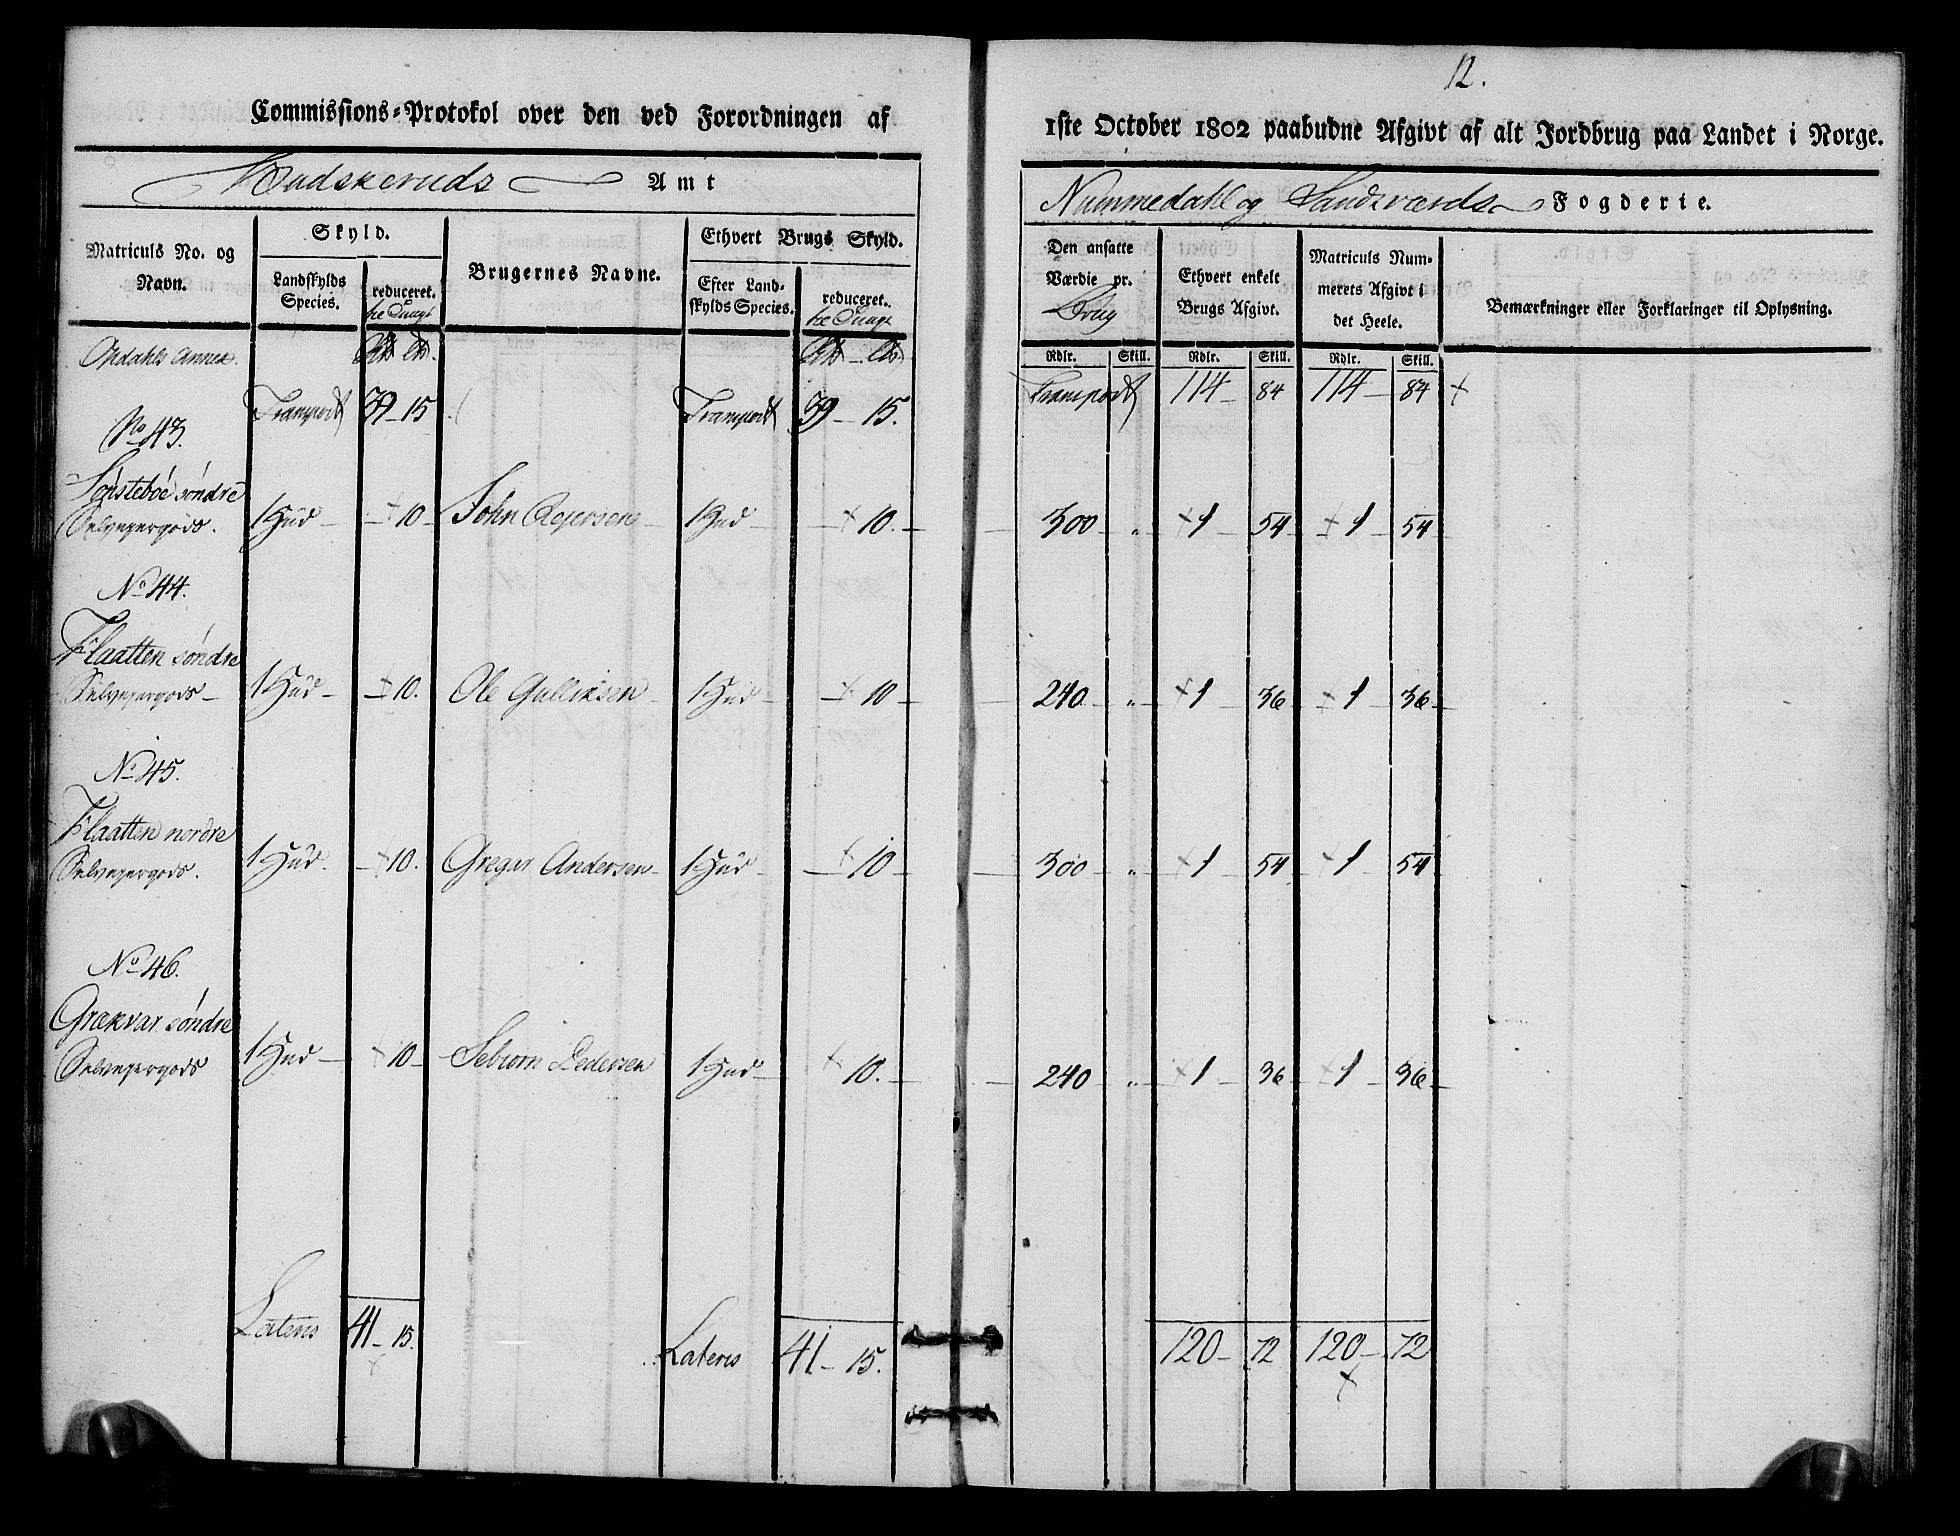 12.
Commissions-Protokol over den ved Forordningen af 1ste October 1802 paabudne Afgivt af alt Jordbrug paa Landet i Norge.
Budskeruds Amt
Nummedahl og Sandsværds Fogderie.
Matriculs No. og Navn.
Skyld.
Landskylds Species.
reduceret.
Brugernes Navne.
Ethvert Brugs Skyld.
Efter Landskylds Species.
reduceret.
Den ansatte Værdie pr. Brug
Ethvert enkelt Brugs Afgivt.
Matriculs Nummerets Afgivt i det Heele.
Bemærkninger eller Forklaringer til Oplysning.
Rdlr. Skill. Rdlr. Skill. Rdlr. Skill.
Opdahls Annex.
Transport 39 - 15 Transport 39 - 15. Transport 114 - 84 114 - 84
No 43.
Sønsteboe søndre
Selveyergods. 1 Hud - 10 - John Rejersen 1 Hud - 10. - 300 - „ - 1 54 - 1 54
No 44.
Flaatten søndre
Selveyergods - 1 Hud - 10. Ole Gulliksen 1 Hud - 10 - 240 - „ - 1 36 - 1 36
No 45.
Flaatten nordre
Selveyergods. 1 Hud. - 10. Gregar Andersen - 1 Hud - 10 - 300 - „ - 1 54 - 1 54
No 46.
Grækvar søndre
Selveyergods 1 Hud - 10 - Sebiorn Pedersen 1 Hud - 10. - 240 - „ - 1 36 - 1 36
Lateris 41 - 15. Lateris 41 - 15. 120 - 72 120 - 72